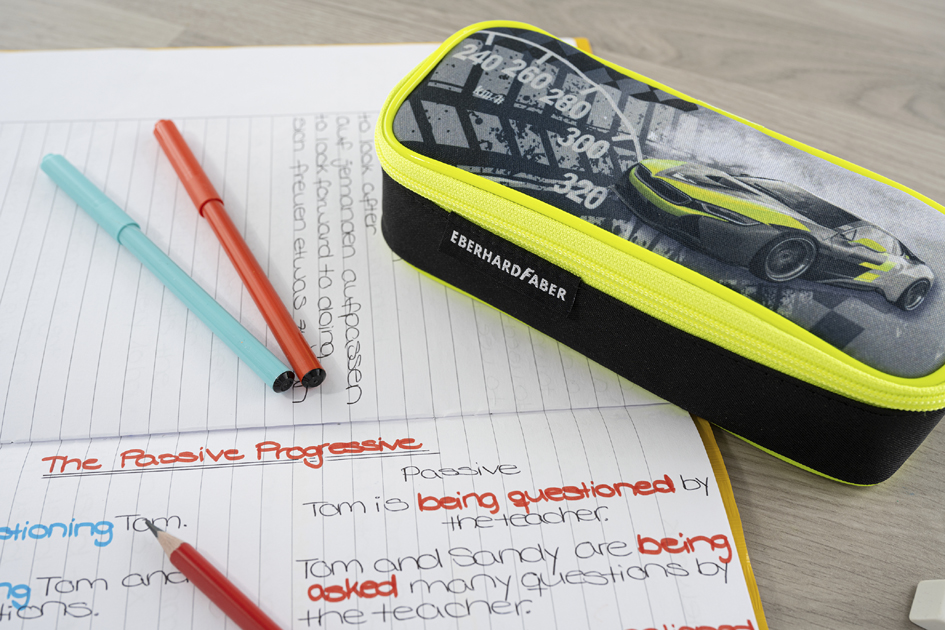 240 260 280 300 320
km/h
EBERHARD FABER
to look after
auf jemanden aufpassen
to look forward to doing
sich freuen etwas zu
The Passive Progressive
stioning Tom.
ng Tom and
tions.
Passive
Tom is being questioned by
the teacher.
Tom and Sandy are being
asked many questions by
the teacher.